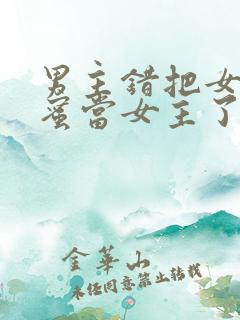 男主错把女
蜜当女主了
金华山
未经同意禁止转载